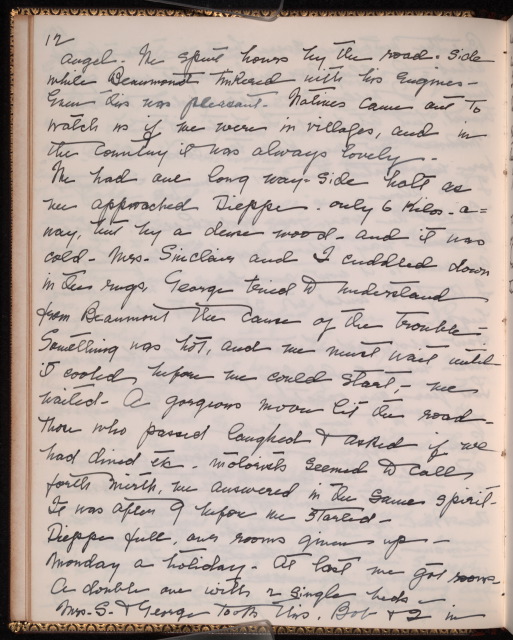 12
angel. We spent hours by the road-side
while Beaumont tinkered with his engines -
Even this was pleasant. Natives came out to
watch us if we were in villages, and in
the country it was always lovely -
We had one long way-side halt as
we approached Dieppe. only 6 Kilos. a=
way, but by a dense wood - and it was
cold - Mrs. Sinclair and I cuddled down
in the rugs, George tried to understand
from Beaumont the cause of the trouble -
Something was hot, and we must wait until
it cooled before we could start, - we
waited - A gorgeous moon lit the road -
Those who passed laughed & asked if we
had dined etc. motorists seemed to call
forth mirth, we answered in the same spirit -
It was after 9 before we started -
Dieppe full, our rooms given up -
Monday a holiday - At last we got rooms
A double one with 2 single beds -
Mrs. S. & George took this, Bob & I in